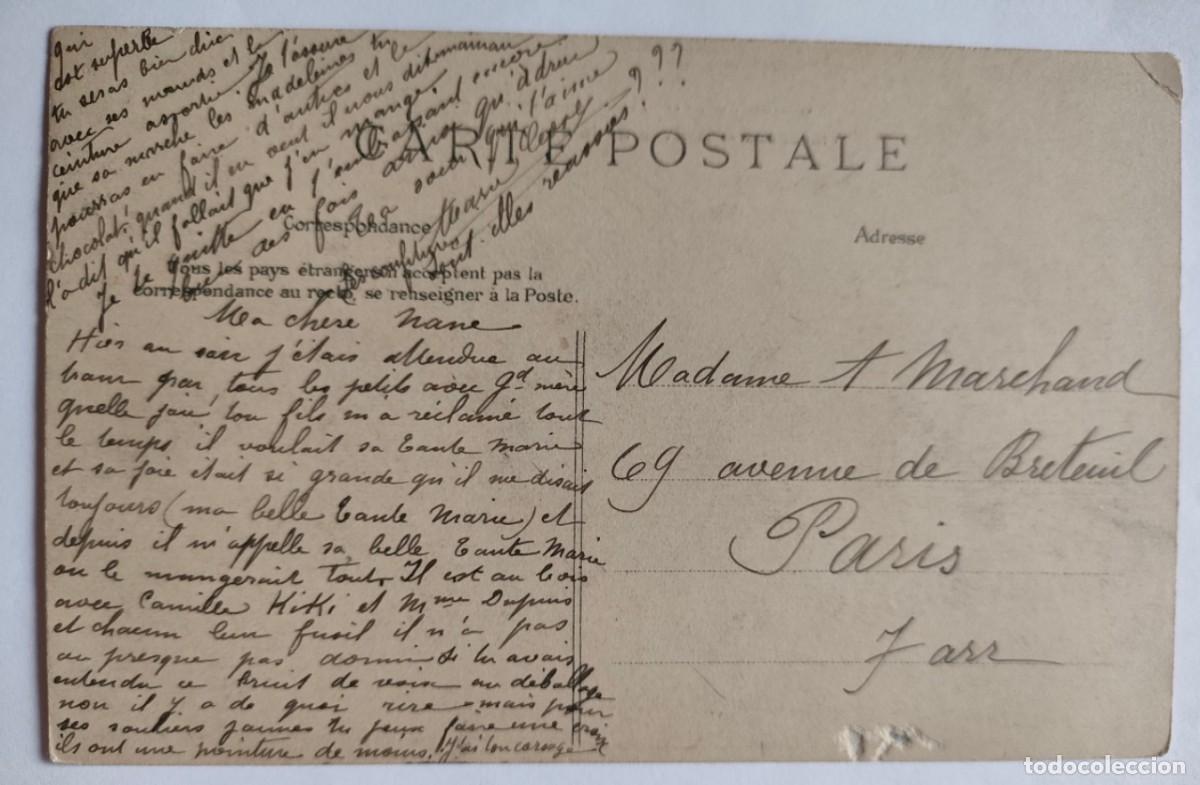 CARTE POSTALE
Correspondance
Adresse
Tous les pays étrangers n'acceptent pas la
correspondance au recto, se renseigner à la Poste.
Ma chere Nane
Hier au soir j'étais attendue au
tram par tous les petits avec gd mère
quelle joie, ton fils m'a réclamé tout
le temps il voulait sa Tante Marie
et sa joie était si grande qu'il me disait
toujours (ma belle Tante Marie) et
depuis il m'appelle sa belle Tante Marie
on le mangerait tout. Il est au bois
avec Camille KiKi et Mme Dupuis
et chacun leur fusil il n'a pas
ou presque pas dormi si tu avais
entendu ce bruit de voix au déballage
non il y a de quoi rire mais pour
ses souliers jaunes tu peux faire une croix
ils ont une pointure de moins. J'ai ton corsage
qui
est superbe
tu seras bien chic
avec ses nœuds et la
ceinture assortie Je t'assure
que sa marche les madeleines tu
pourras en faire d'autres et le
chocolat, quand il en veut il nous dit maman
t'a dit qu'il fallait que j'en mange.
Je te quitte en t'embrassant encore
bien des fois ainsi qu'Adrien
Ta soeur qui t'aime
Marie
Les confitures
sont elles ???
Madame A Marchand
69 avenue de Breteuil
Paris
7 arr
todocoleccion